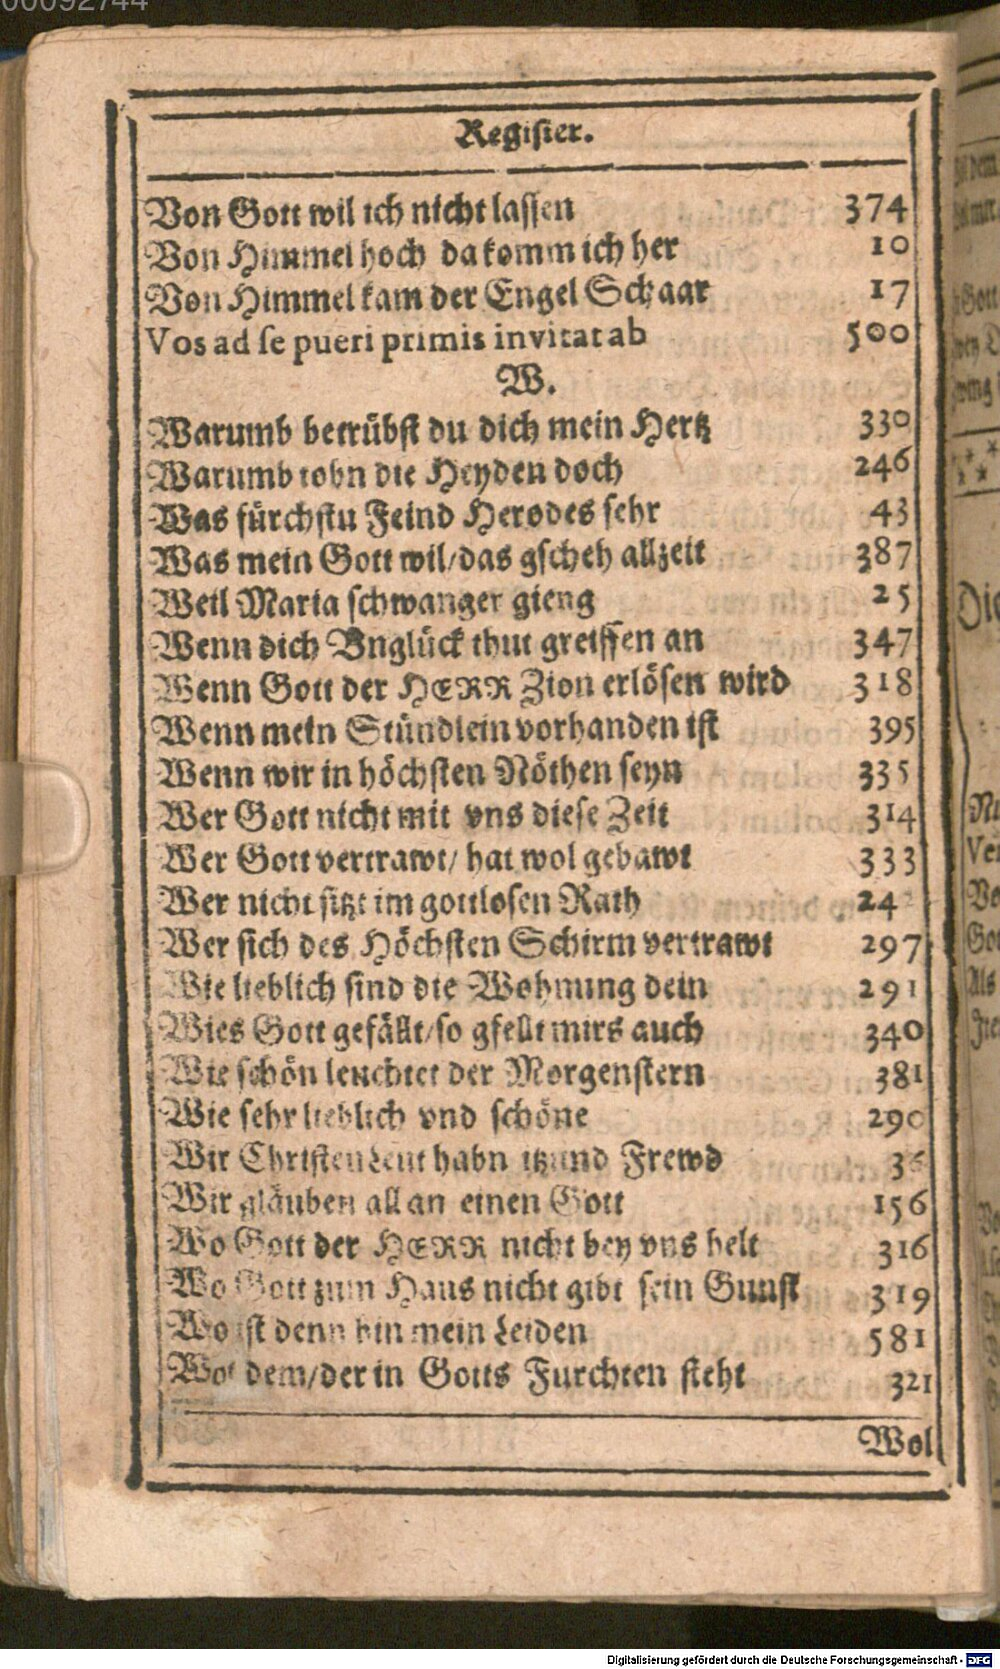 00092744
Register.
Von Gott wil ich nicht lassen 374
Von Himmel hoch da komm ich her 10
Von Himmel kam der Engel Schaar 17
Vos ad se pueri primis invitat ab 500
W.
Warumb betrübst du dich mein Hertz 330
Warumb tobn die Heyden doch 246
Was fürchstu Feind Herodes sehr 43
Was mein Gott wil/das gscheh allzeit 387
Weil Maria schwanger gieng 25
Wenn dich Vnglück thut greiffen an 347
Wenn Gott der HERR Zion erlösen wird 318
Wenn mein Stündlein vorhanden ist 395
Wenn wir in höchsten Nöthen seyn 335
Wer Gott nicht mit vns diese Zeit 314
Wer Gott vertrawt/ hat wol gebawt 333
Wer nicht sitzt im gottlosen Rath 24
Wer sich des Höchsten Schirm vertrawt 297
Wie lieblich sind die Wohnung dein 291
Wies Gott gefällt/so gfellt mirs auch 340
Wie schön leuchtet der Morgenstern 381
Wie sehr lieblich vnd schöne 290
Wir Christen Leut habn itzund Frewd 36
Wir gläuben all an einen Gott 156
Wo Gott der HERR nicht bey vns helt 316
Wo Gott zum Haus nicht gibt sein Gunst 319
Wo ist denn hin mein Leiden 581
Wol dem/der in Gotts Furchten steht 321
Wol
Digitalisierung gefördert durch die Deutsche Forschungsgemeinschaft - DFG